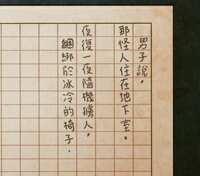 男子說，
那怪人住在地下室。
夜復一夜隨機擄人，
綑綁於冰冷的椅子．